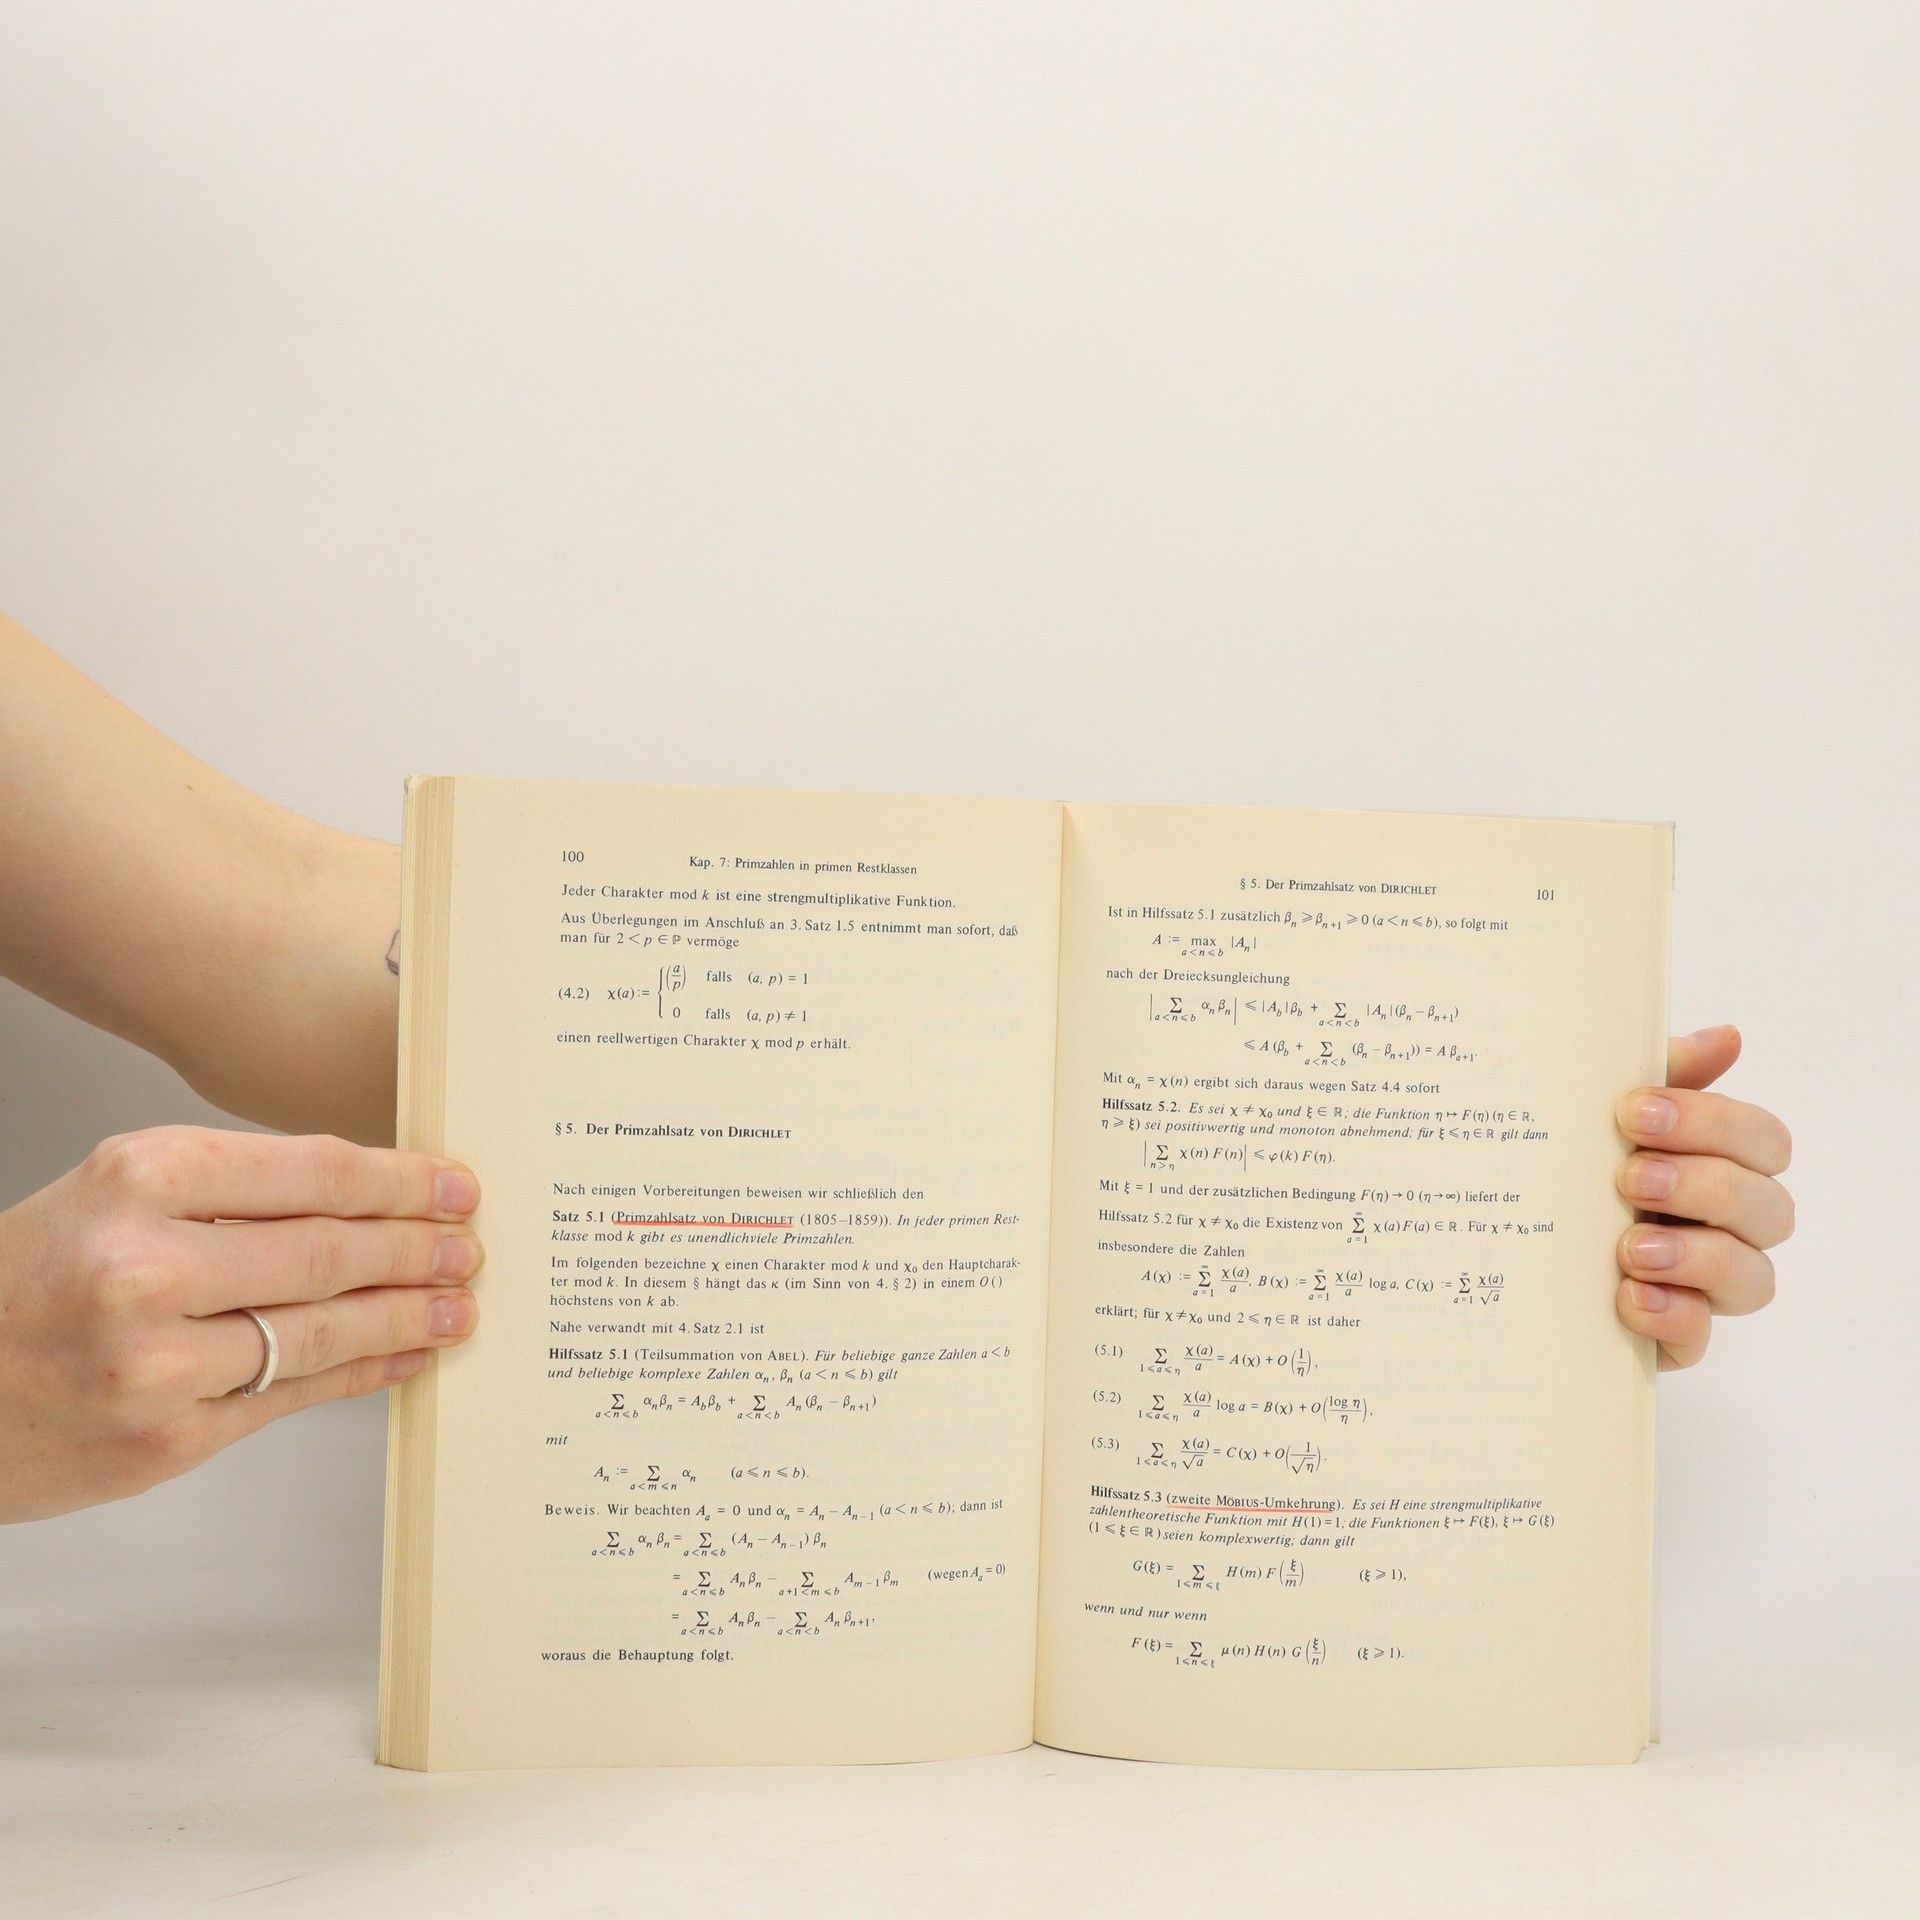 100
Kap. 7: Primzahlen in primen Restklassen
Jeder Charakter mod k ist eine strengmultiplikative Funktion.
Aus Überlegungen im Anschluß an 3. Satz 1.5 entnimmt man sofort, daß
man für 2 < p ∈ ℙ vermöge
(4.2) χ(a) := { (a/p) falls (a, p) = 1
0 falls (a, p) ≠ 1
einen reellwertigen Charakter χ mod p erhält.
§ 5. Der Primzahlsatz von DIRICHLET
Nach einigen Vorbereitungen beweisen wir schließlich den
Satz 5.1 (Primzahlsatz von DIRICHLET (1805–1859)). In jeder primen Rest-
klasse mod k gibt es unendlichviele Primzahlen.
Im folgenden bezeichne χ einen Charakter mod k und χ₀ den Hauptcharak-
ter mod k. In diesem § hängt das κ (im Sinn von 4. § 2) in einem O ()
höchstens von k ab.
Nahe verwandt mit 4. Satz 2.1 ist
Hilfssatz 5.1 (Teilsummation von ABEL). Für beliebige ganze Zahlen a < b
und beliebige komplexe Zahlen αₙ, βₙ (a < n ⩽ b) gilt
∑_{a<n⩽b} αₙβₙ = A_bβ_b + ∑_{a<n<b} Aₙ (βₙ − βₙ₊₁)
mit
Aₙ := ∑_{a<m⩽n} αₙ (a ⩽ n ⩽ b).
Beweis. Wir beachten Aₐ = 0 und αₙ = Aₙ − Aₙ₋₁ (a < n ⩽ b); dann ist
∑_{a<n⩽b} αₙ βₙ = ∑_{a<n⩽b} (Aₙ − Aₙ₋₁) βₙ
= ∑_{a<n⩽b} Aₙ βₙ − ∑_{a+1<m⩽b} Aₘ₋₁ βₘ (wegen Aₐ = 0)
= ∑_{a<n⩽b} Aₙ βₙ − ∑_{a<n<b} Aₙ βₙ₊₁,
woraus die Behauptung folgt.
§ 5. Der Primzahlsatz von DIRICHLET
101
Ist in Hilfssatz 5.1 zusätzlich βₙ ⩾ βₙ₊₁ ⩾ 0 (a < n ⩽ b), so folgt mit
A := max_{a<n⩽b} |Aₙ|
nach der Dreiecksungleichung
|∑_{a<n⩽b} αₙβₙ| ⩽ |A_b|β_b + ∑_{a<n<b} |Aₙ|(βₙ − βₙ₊₁)
⩽ A (β_b + ∑_{a<n<b} (βₙ − βₙ₊₁)) = A βₐ₊₁.
Mit αₙ = χ(n) ergibt sich daraus wegen Satz 4.4 sofort
Hilfssatz 5.2. Es sei χ ≠ χ₀ und ξ ∈ ℝ; die Funktion η ↦ F(η) (η ∈ ℝ,
η ⩾ ξ) sei positivwertig und monoton abnehmend; für ξ ⩽ η ∈ ℝ gilt dann
|∑_{n>η} χ(n) F(n)| ⩽ φ(k) F(η).
Mit ξ = 1 und der zusätzlichen Bedingung F(η) → 0 (η→∞) liefert der
Hilfssatz 5.2 für χ ≠ χ₀ die Existenz von ∑_{a=1}^{∞} χ(a) F(a) ∈ ℝ. Für χ ≠ χ₀ sind
insbesondere die Zahlen
A(χ) := ∑_{a=1}^{∞} χ(a)/a, B(χ) := ∑_{a=1}^{∞} χ(a)/a log a, C(χ) := ∑_{a=1}^{∞} χ(a)/√a
erklärt; für χ≠χ₀ und 2 ⩽ η ∈ ℝ ist daher
(5.1) ∑_{1⩽a⩽η} χ(a)/a = A(χ) + O(1/η),
(5.2) ∑_{1⩽a⩽η} χ(a)/a log a = B(χ) + O(log η/η),
(5.3) ∑_{1⩽a⩽η} χ(a)/√a = C(χ) + O(1/√η).
Hilfssatz 5.3 (zweite MÖBIUS-Umkehrung). Es sei H eine strengmultiplikative
zahlentheoretische Funktion mit H(1) = 1; die Funktionen ξ ↦ F(ξ), ξ ↦ G(ξ)
(1 ⩽ ξ ∈ ℝ) seien komplexwertig; dann gilt
G(ξ) = ∑_{1⩽m⩽ξ} H(m) F(ξ/m) (ξ ⩾ 1),
wenn und nur wenn
F(ξ) = ∑_{1⩽n⩽ξ} μ(n) H(n) G(ξ/n) (ξ ⩾ 1).